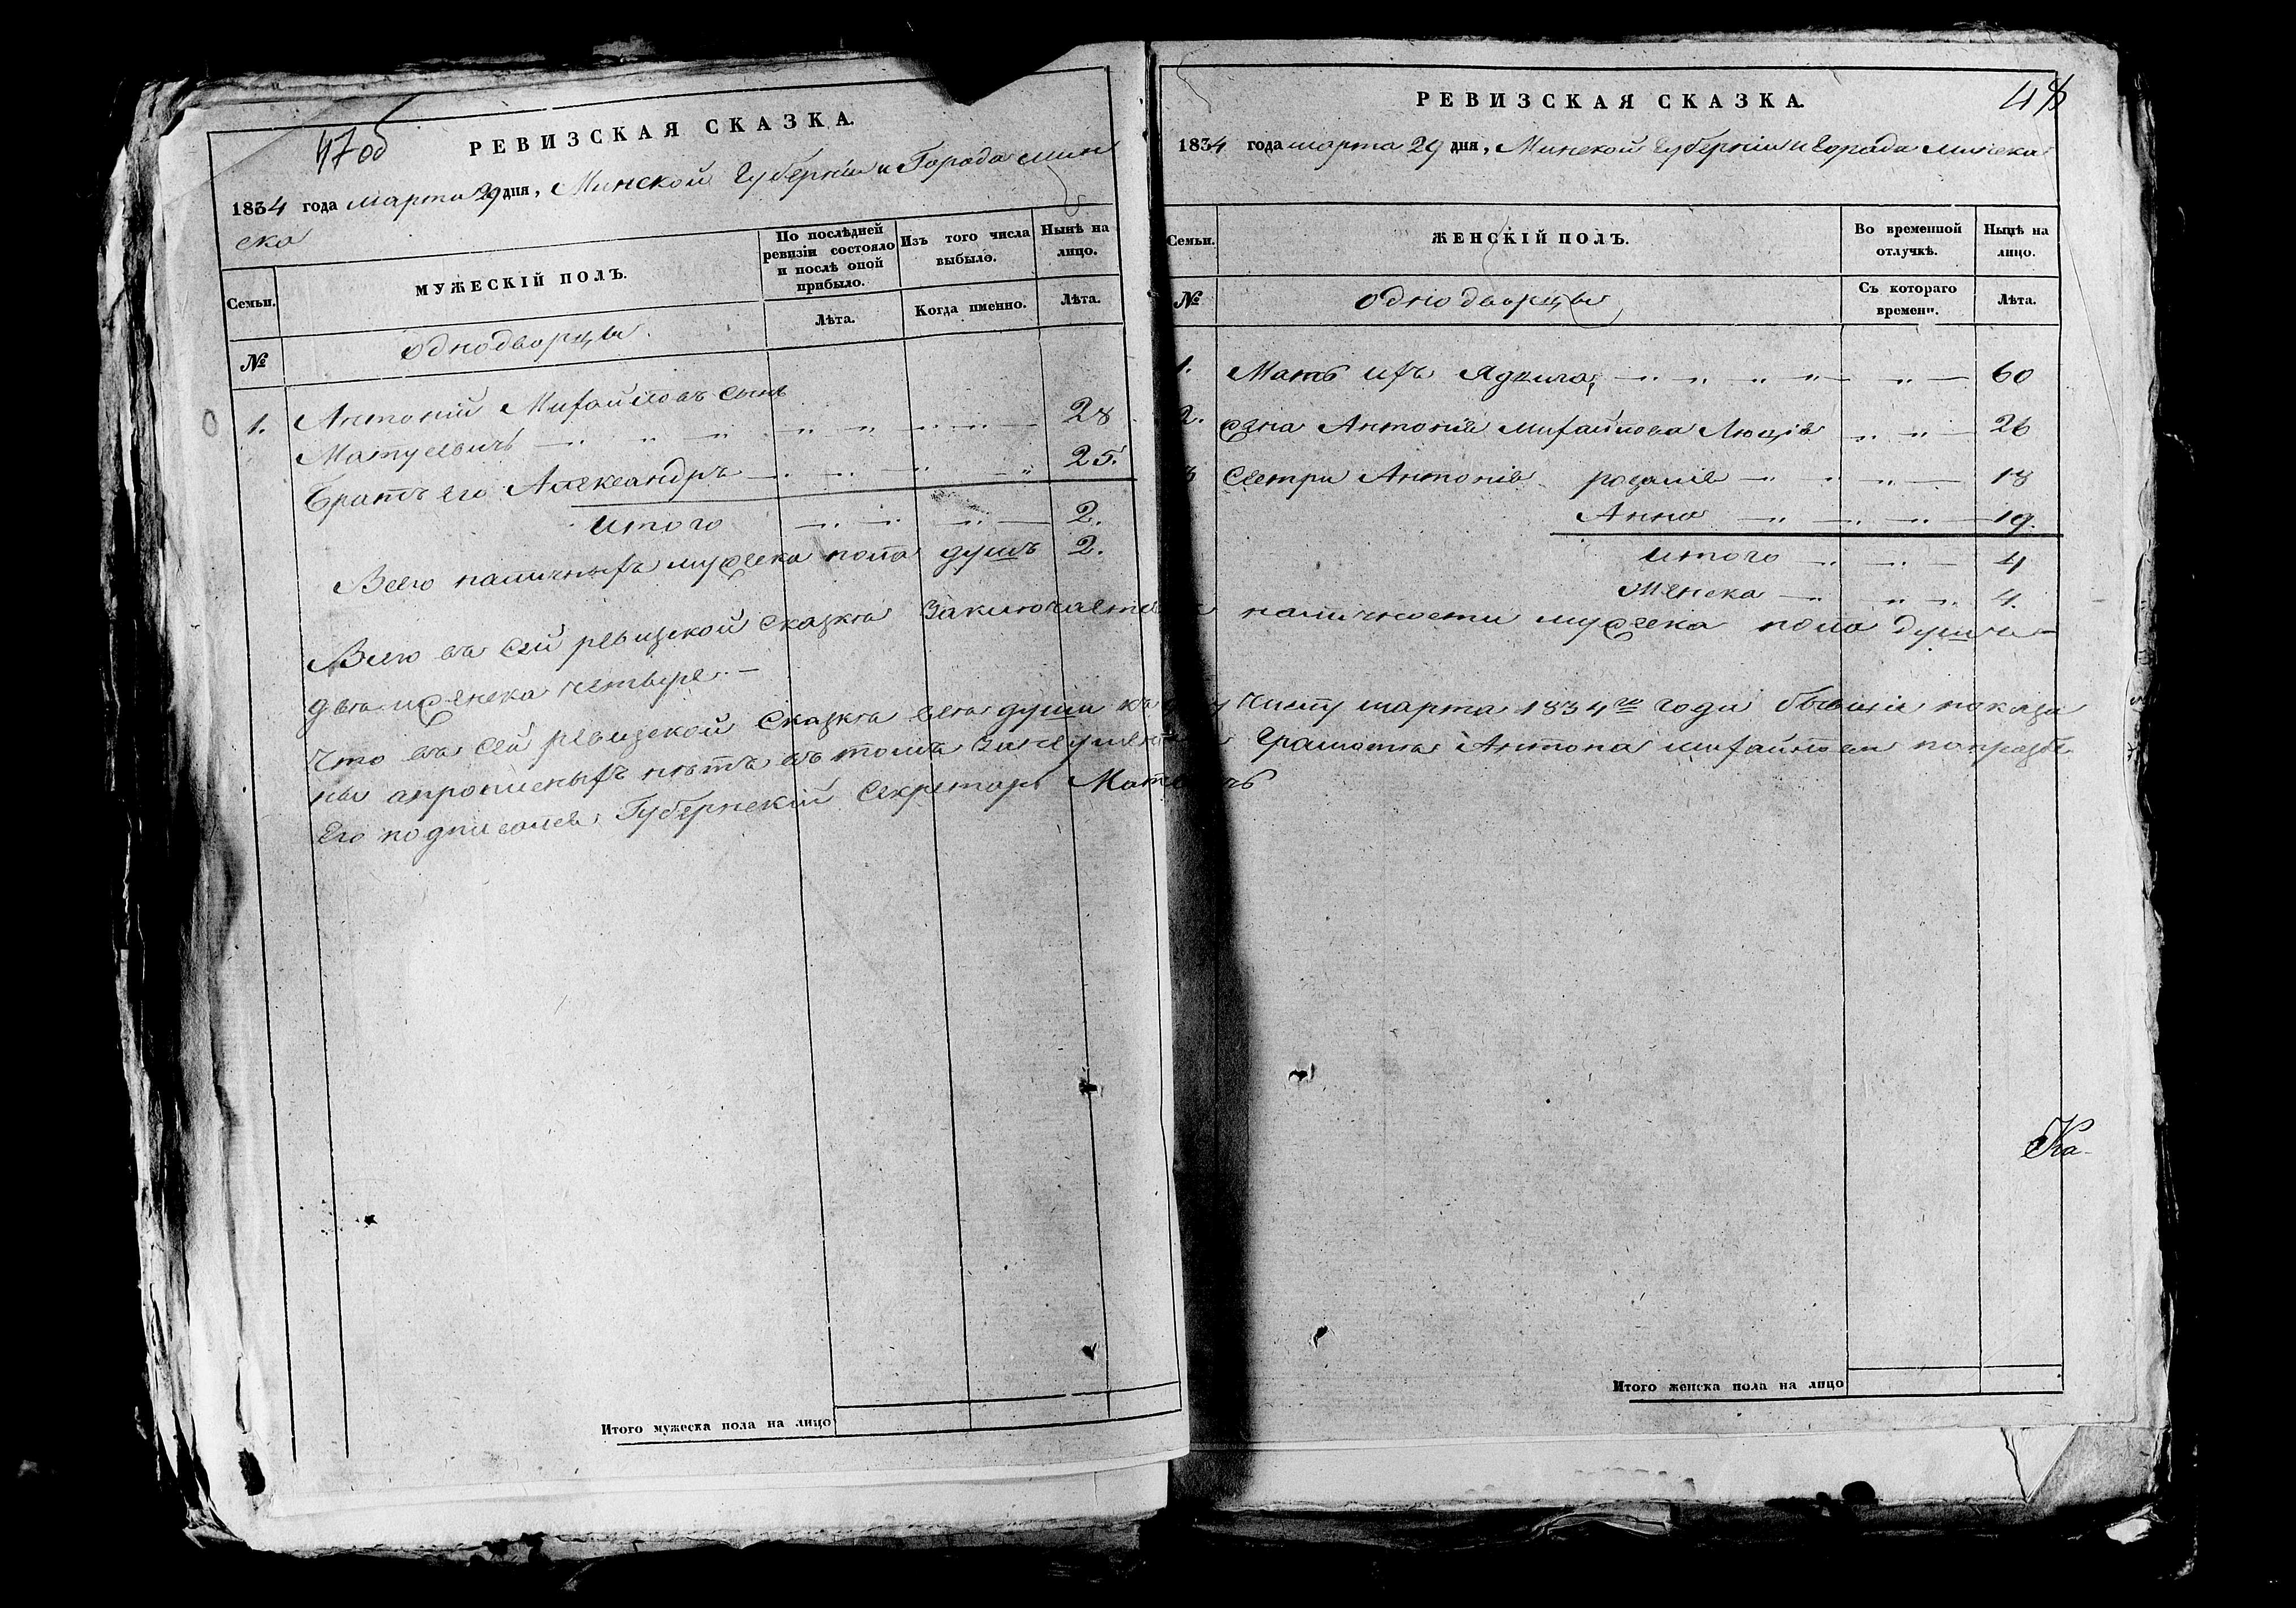 47 об
РЕВИЗСКАЯ СКАЗКА.
1834 года марта 29 дня, Минской Губерніи и Города Мин
ска
Семьи.
МУЖЕСКІЙ ПОЛЪ.
По послѣдней ревизіи состояло и послѣ оной прибыло.
Изъ того числа выбыло.
Нынѣ на лицо.
№
однодворцы
Лѣта.
Когда именно.
Лѣта.
1. Антоній Михайловъ сынъ
Матусевичъ 28
Братъ его Александръ 25.
Итого 2.
Всего наличныхъ мужеска пола душъ 2.
Итого мужеска пола на лицо
48
РЕВИЗСКАЯ СКАЗКА.
1834 года марта 29 дня, Минской Губерніи и Города Минска
Семьи.
ЖЕНСКІЙ ПОЛЪ.
Во временной отлучкѣ.
Нынѣ на лицо.
№
однодворцы
Съ котораго времени.
Лѣта.
1. Мать ихъ Ядвига, 60
2. Антонія Михайлова Люція 26
Сестри Антонія розалія 18
Анна 19.
Итого 4
Женска 4.
Всего въ сей ревизской сказкѣ заключается наличности мужеска пола душъ
два женска четыре.
Что въ сей ревизской сказкѣ всѣ души къ числу марта 1834 го года бывшіе показа
ны а прописныхъ нѣтъ въ томъ грамотѣ Антона Михайлова
Его подписался Губернскій Секретарь
Итого женска пола на лицо
Ка-